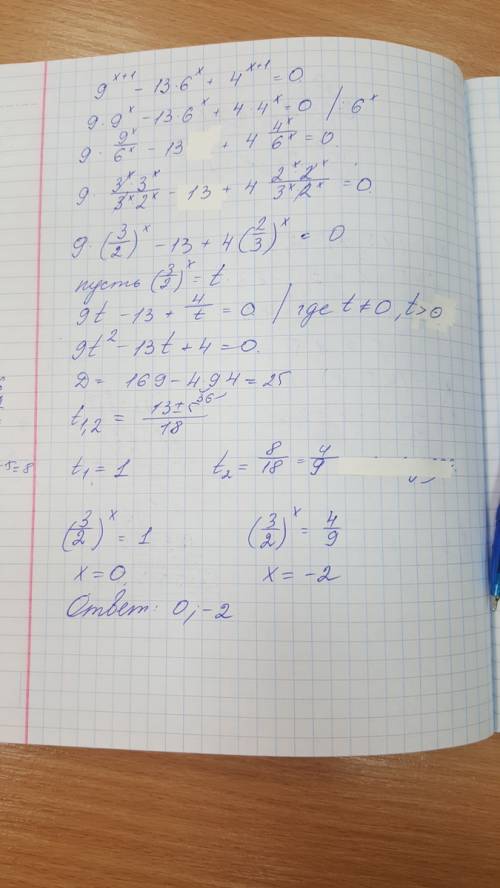 9^(x+1) − 13·6^x + 4^(x+1) = 0
9·9^x − 13·6^x + 4·4^x = 0 /:6^x
9·9^x/6^x − 13 + 4 4^x/6^x = 0.
9·3^x3^x/3^x2^x − 13 + 4 2^x2^x/3^x2^x = 0.
9·(3/2)^x − 13 + 4(2/3)^x = 0
пусть (3/2)^x = t
9t − 13 + 4/t = 0 / где t≠0, t>0
9t² − 13t + 4 = 0.
D = 169 − 4·9·4 = 25
t1,2 = 13±5/18
-5=8
t1 = 1 t2 = 8/18 = 4/9
(3/2)^x = 1 (3/2)^x = 4/9
x = 0 x = −2
Ответ: 0; −2